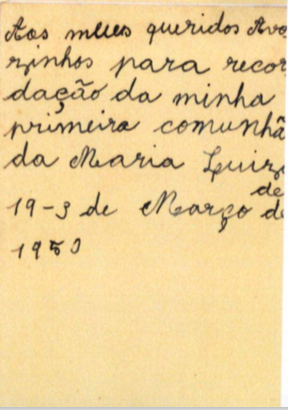 Aos meus queridos Avo
zinhos para recor
dação da minha
primeira comunhã
da Maria Luiz
de
19-3 de Março d